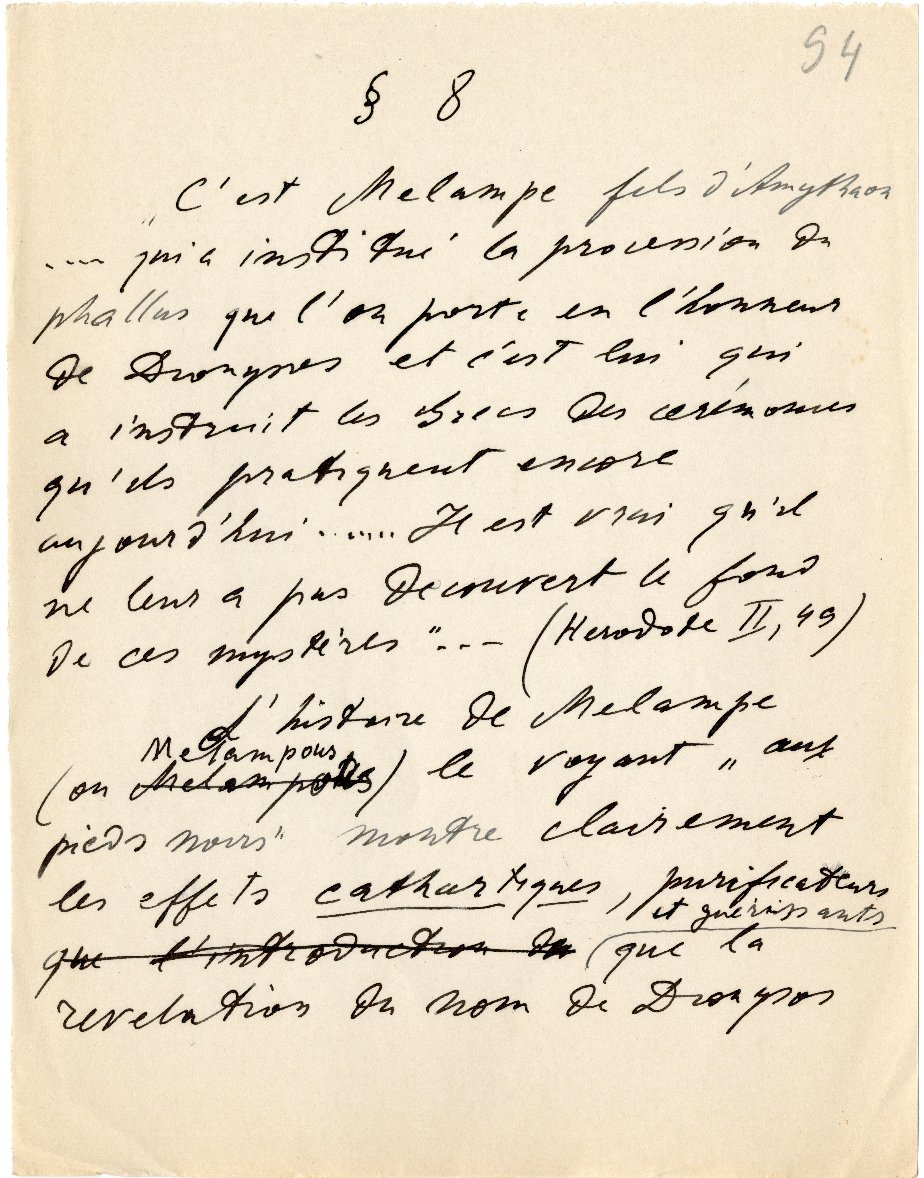 94
§ 8
„C'est Melampe fils d'Amythaon
.... qui a institué la procession du
phallus que l'on porte en l'honneur
de Dionysos et c'est lui qui
a instruit les Grecs des cerémonies
qu'ils pratiquent encore
aujourd'hui ...... Il est vrai qu'il
ne leur a pas decouvert le fond
de ces mystères" --- (Herodote II, 49)
L'histoire de Melampe
Melampous
(ou Melampous) le voyant „aux
pieds noirs" montre clairement
les effets cathartiques, purificateurs
et guérissants
que l'introduction du (que la
revelation du nom de Dionysos